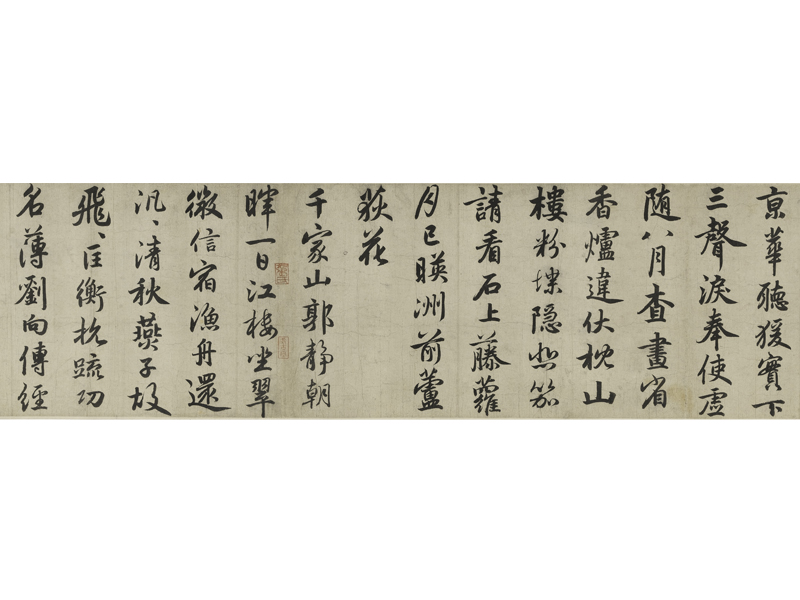 京華聽猨實下
三聲淚奉使虛
随八月查畫省
香爐違伏枕山
樓粉堞隐悲笳
請看石上藤蘿
月已暎洲前蘆
荻花
千家山郭靜朝
暉一日江樓坐翠
微信宿漁舟還
汎〻清秋燕子故
飛〻匡衡抗疏功
名薄劉向傳經